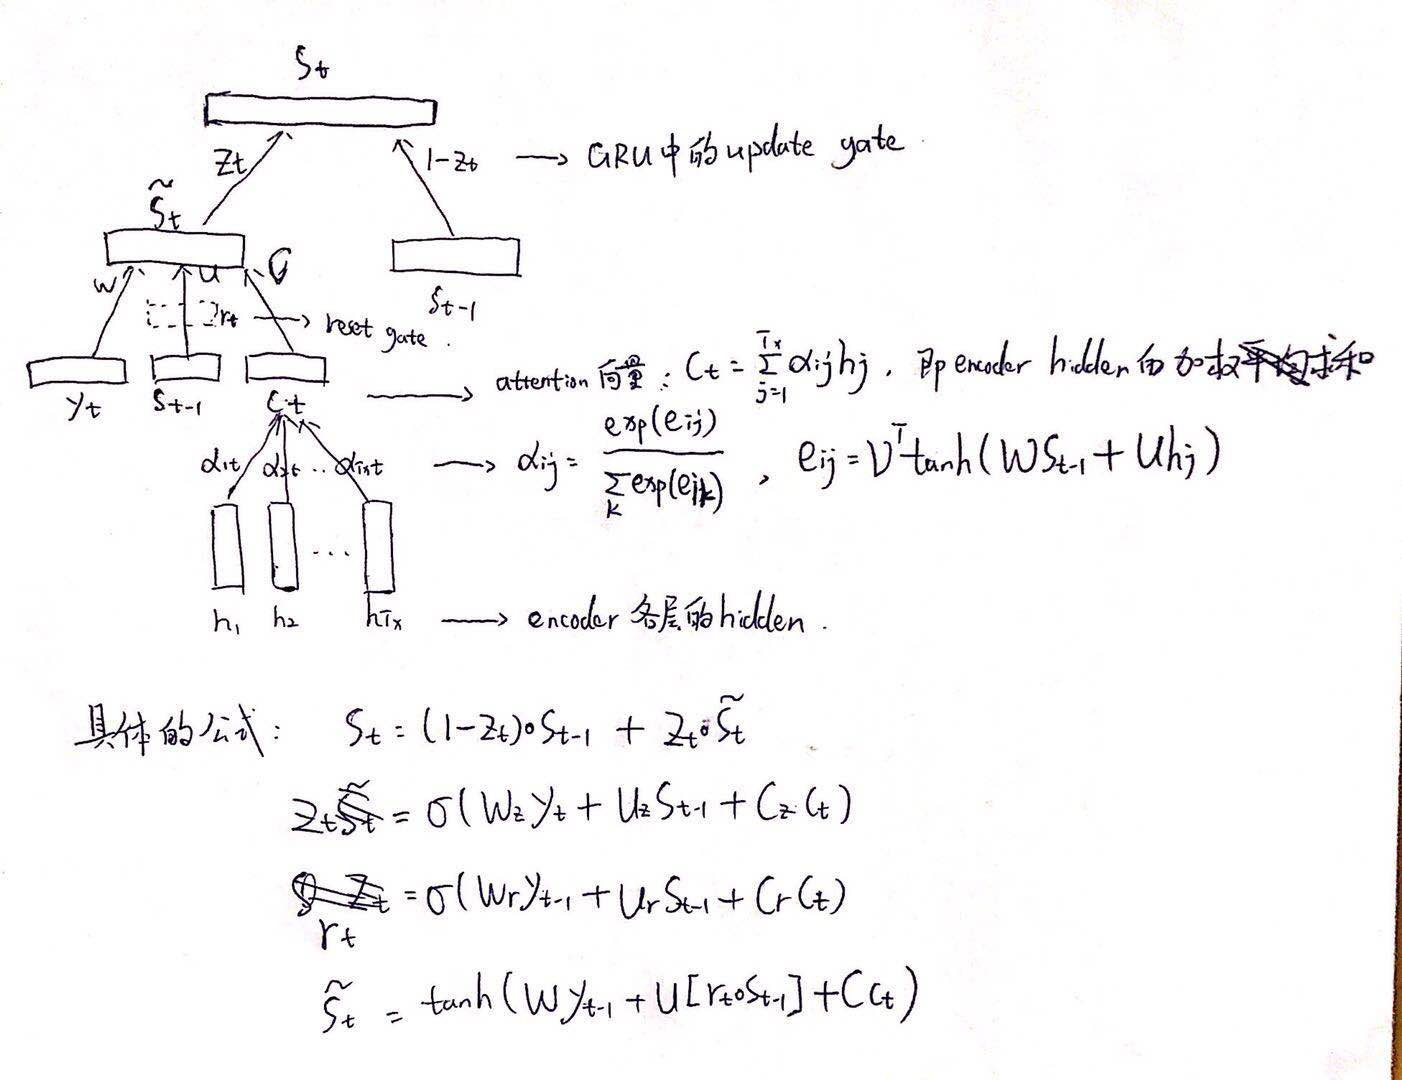 St
Zt 1-Zt → GRU中的update gate.
S̃t
W U C
St-1
rt → reset gate.
yt St-1 Ct → attention向量: Ct = Σ_{j=1}^{Tx} αij hj, 即encoder hidden的加权求和
α1t α2t ·· αTxt → αij = exp(eij) / Σ_k exp(eik), eij = V^T tanh(WSt-1 + Uhj)
...
h1 h2 hTx → encoder各层的hidden.
具体的公式: St = (1-Zt)∘St-1 + Zt∘S̃t
Zt = σ(Wz yt + Uz St-1 + Cz Ct)
rt = σ(Wr yt-1 + Ur St-1 + Cr Ct)
S̃t = tanh(W yt-1 + U[rt∘St-1] + C Ct)